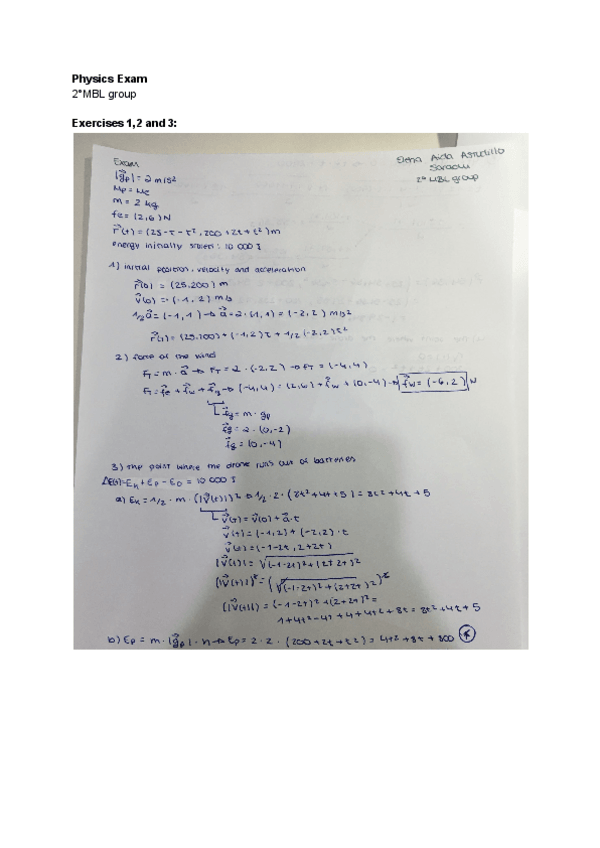 Physics Exam
2ºMBL group
Exercises 1,2 and 3:
Exam
Elena Aida Astudillo
2º MBL group
|g⃗p| = 2 m/s²
m = 2 kg
fe = (2,6) N
r⃗(t) = (25-t-t², 200+2t+t²) m
energy initially stored: 10 000 J
1) initial position, velocity and acceleration
r⃗(0) = (25,200) m
v⃗(0) = (-1, 2) m/s
1/2 a⃗ = (-1,1) → a⃗ = 2·(-1,1) = (-2,2) m/s²
r⃗(t) = (25,100) + (-1,2)t + 1/2(-2,2)t²
2) force of the wind
FT = m·a⃗ → FT = 2·(-2,2) → FT = (-4,4)
FT = f⃗e + f⃗w + f⃗g → (-4,4) = (2,6) + f⃗w + (0,-4) → f⃗w = (-6,2) N
f⃗g = m·gp
f⃗g = 2·(0,-2)
f⃗g = (0,-4)
3) the point where the drone runs out of batteries
ΔE(t) = Ek + Ep - E0 = 10 000 J
a) Ek = 1/2·m·(|v⃗(t)|)² → 1/2·2·(8t²+4t+5) = 8t²+4t+5
v⃗(t) = v⃗(0) + a⃗·t
v⃗(t) = (-1,2) + (-2,2)·t
v⃗(t) = (-1-2t, 2+2t)
|v⃗(t)| = √(-1-2t)²+(2+2t)²
(|v⃗(t)|)² = (√(-1-2t)²+(2+2t)²)²
(|v⃗(t)|) = (-1-2t)²+(2+2t)² =
1+4t²-4t+4+4t²+8t = 8t²+4t+5
b) Ep = m·|g⃗p|·h → Ep = 2·2·(200+2t+t²) = 4t²+8t+800